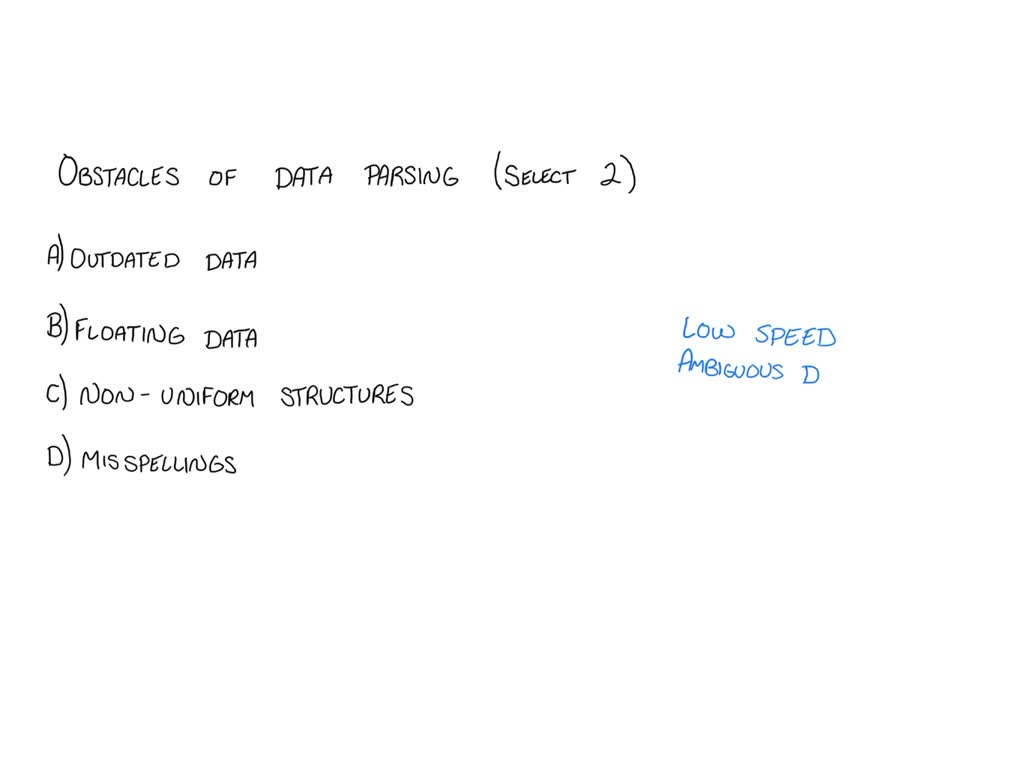 OBSTACLES OF DATA PARSING (SELECT 2)
A) OUTDATED DATA
B) FLOATING DATA
C) NON-UNIFORM STRUCTURES
D) MISSPELLINGS
LOW SPEED
AMBIGUOUS D